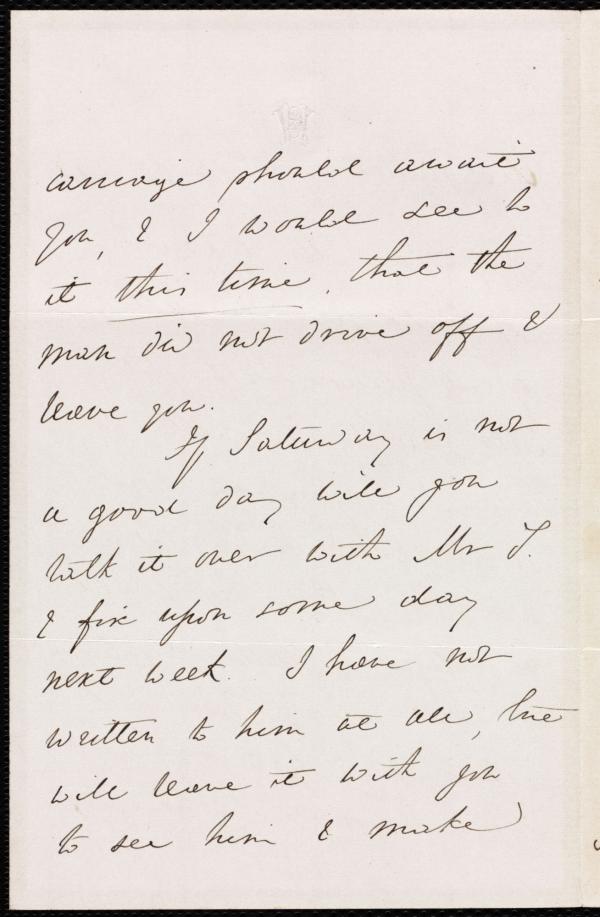 carriage should await
you, & I would see to
it this time, that the
man did not drive off &
leave you.
If Saturday is not
a good day will you
talk it over with Mr T.
& fix upon some day
next week. I have not
written to him at all, but
will leave it with you
to see him & make